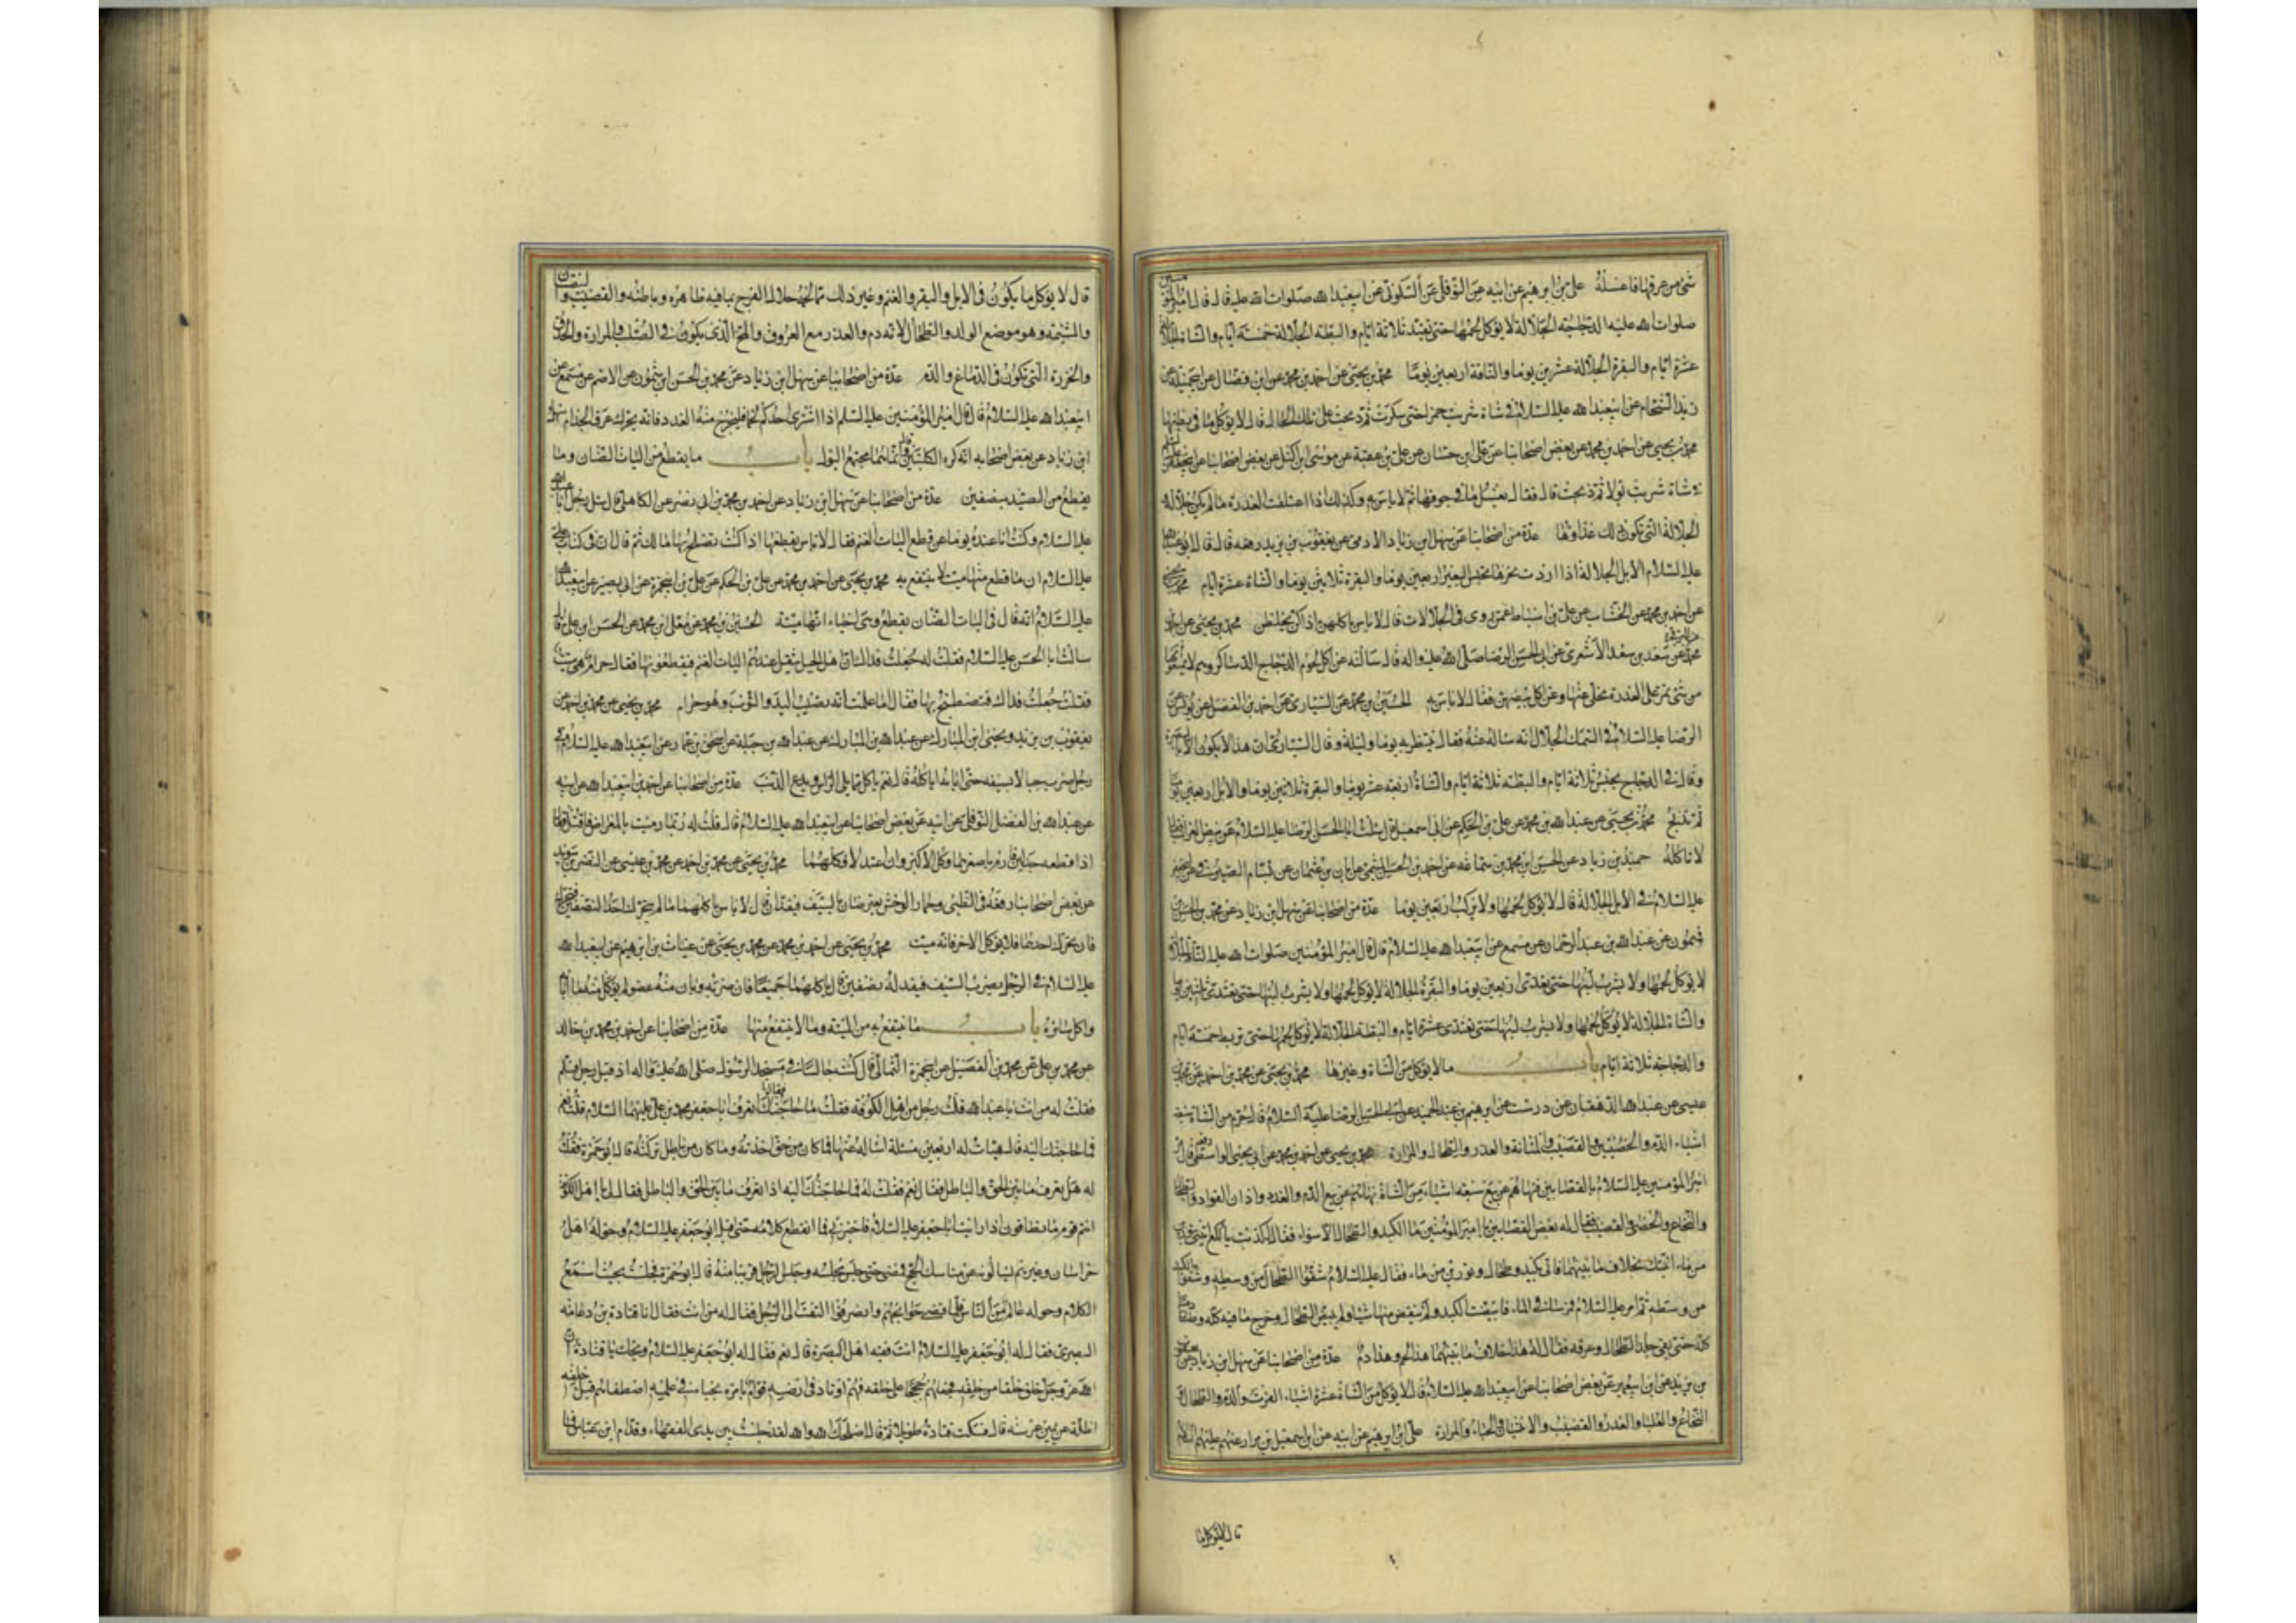 شئ من عرقها فاغسله علی بن ابرهیم عن ابیه عن النوفلی عن السکونی عن ابیعبدالله صلوات الله علیه قال قال امیرالمؤمنین
صلوات الله علیه الدجاجة الجلالة لا یؤکل لحمها حتی تغتذی ثلاثة ایام والبطة الجلالة خمسة ایام والشاة الجلالة
عشرة ایام والبقرة الجلالة عشرین یوما والناقة اربعین یوما محمد بن یحیی عن احمد بن محمد عن ابن فضال عن ابی جمیلة عن
زید الشحام عن ابیعبدالله علیه السلام فی شاة شربت خمرا حتی سکرت ثم ذبحت علی تلک الحال قال لا یؤکل ما فی بطنها
محمد بن یحیی عن احمد بن محمد عن بعض اصحابنا عن علی ابن حسان عن علی بن عقبة عن موسی ابن اکیل عن بعض اصحابنا عن ابیجعفر علیه السلام
فی شاة شربت بولا ثم ذبحت قال فقال یغسل ما فی جوفها ثم لا باس به وکذلک اذا اعتلفت العذرة ما لم یکن جلالة و
الجلالة التی تکون ذلک غذاؤها عدة من اصحابنا عن سهل ابن زیاد الادمی عن یعقوب بن یزید رفعه قال قال ابو عبدالله
علیه السلام الابل الجلالة اذا اردت نحرها تحبس البعیر اربعین یوما والبقرة ثلاثین یوما والشاة عشرة ایام محمد بن یحیی
عن احمد بن محمد عن الخشاب عن علی بن اسباط عمن روی فی الجلالات قال لا باس باکلهن اذا کن یخلطن محمد بن یحیی عن احمد بن
محمد عن البرقی عن سعد بن سعد الاشعری عن ابی الحسن الرضا صلی الله علیه واله قال سالته عن اکل لحوم الدجاج الدساکر وهم لا یمنعونها
من شئ تمر علی العذرة مخلی عنها وعن اکل بیضهن فقال لا باس به الحسین بن محمد عن السیاری عن احمد بن الفضل عن یونس عن
الرضا علیه السلام فی السمک الجلال انه ساله عنه فقال ینتظر به یوما ولیلة وقال السیاری ان هذا لا یکون الا بالبصرة
وقال فی الدجاج یحبس ثلاثة ایام والبطة ثلاثة ایام والشاة اربعة عشر یوما والبقرة ثلاثین یوما والابل اربعین یوما
ثم تذبح محمد بن یحیی عن عبدالله بن محمد عن علی بن الحکم عن ابی اسمعیل قال سالت ابا الحسن الرضا علیه السلام عن بیض الغراب فقال
لا تاکله حمید بن زیاد عن الحسن ابن محمد بن سماعه عن احمد بن الحسن المیثمی عن ابان بن عثمان عن بسام الصیرفی عن ابیجعفر
علیه السلام فی الابل الجلالة قال لا یؤکل لحمها ولا یرکب اربعین یوما عدة من اصحابنا عن سهل ابن زیاد عن محمد بن الحسن بن
شمون عن عبدالله بن عبدالرحمان عن مسمع عن ابیعبدالله علیه السلام قال قال امیر المؤمنین صلوات الله علیه الناقة الجلالة
لا یؤکل لحمها ولا یشرب لبنها حتی تغتذی اربعین یوما والبقرة الجلالة لا یؤکل لحمها ولا یشرب لبنها حتی تغتذی ثلثین یوما
والشاة الجلالة لا یؤکل لحمها ولا یشرب لبنها حتی تغتذی عشرة ایام والبطة الجلالة لا یؤکل لحمها حتی تربط خمسة ایام
والدجاجة ثلاثة ایام باب ما لا یؤکل من الشاة وغیرها محمد بن یحیی عن محمد بن احمد عن محمد بن
عیسی عن عبدالله الدهقان عن درست عن ابرهیم بن عبدالحمید عن ابی الحسن الرضا علیه السلام قال حرم من الشاة سبعة
اشیاء الدم والخصیتین والقضیب والمثانة والغدد والطحال والمرارة محمد بن یحیی عن احمد بن محمد عن ابی یحیی الواسطی رفعه قال مر
امیر المؤمنین علیه السلام بالقصابین فنهاهم عن بیع سبعة اشیاء من الشاة نهاهم عن بیع الدم والغدد واذان الفواد والطحال
والنخاع والخصی والقضیب فقال له بعض القصابین یا امیر المؤمنین ما الکبد والطحال الا سواء فقال له کذبت یا لکع ائتنی بتورین
من ماء اتیک بخلاف ما بینهما فاتی بکبد وطحال وتورین من ماء فقال علیه السلام شقوا الطحال من وسطه وشقوا الکبد
من وسطه ثم امر علیه السلام فمرسا فی الماء فابیضت الکبد ولم ینقص منها شیئا ولم یبیض الطحال وخرج ما فیه کله وصار دما
کله حتی بقی جلد الطحال وعرقه فقال له هذا خلاف ما بینهما هذا لحم وهذا دم عدة من اصحابنا عن سهل ابن زیاد عن یعقوب
بن یزید عن ابن ابیعمیر عن بعض اصحابنا عن ابیعبدالله علیه السلام قال لا یؤکل من الشاة عشرة اشیاء الفرث والدم والطحال و
النخاع والعلباء والغدد والقضیب والانثیان والحیاء والمرارة علی بن ابرهیم عن ابیه عن ابن اسمعیل بن مرار عنهم علیهم السلام
قال لا یؤکل ما
قال لا یؤکل ما یکون فی الابل والبقر والغنم وغیر ذلک مما لحمه حلال الفرج بما فیه ظاهره وباطنه والقضیب والبیضتان
والمشیمه وهو موضع الولد والطحال لانه دم والغدد مع العروق والمخ الذی یکون فی الصلب والمرارة والحدق
والخرزة التی تکون فی الدماغ والدم عدة من اصحابنا عن سهل ابن زیاد عن محمد بن الحسن ابن شمون عن الاصم عن مسمع عن
ابیعبدالله علیه السلام قال قال امیر المؤمنین علیه السلم اذا اشتری احدکم لحما فلیخرج منه الغدد فانه یحرک عرق الجذام سهل
ابن زیاد عن بعض اصحابه انه کره الکلیتین وقال انما هما مجتمع البول باب ما یقطع من الیات الضان وما
یقطع من الصید بنصفین عدة من اصحابنا عن سهل ابن زیاد عن احمد بن محمد بن ابی نصر عن الکاهلی قال سئل رجل ابا عبدالله
علیه السلام وکنت انا عنده یوما عن قطع الیات الغنم فقال لا باس بقطعها اذا کنت تصلح بها مالک ثم قال ان فی کتاب علی
علیه السلام ان ما قطع منها میت لا ینتفع به محمد بن یحیی عن احمد بن محمد عن علی بن الحکم عن علی بن ابیحمزة عن ابی بصیر عن ابیعبدالله
علیه السلام انه قال فی الیات الضان یقطع وهی احیاء انها میتة الحسین بن محمد عن معلی ابن محمد عن الحسن ابن علی قال
سالت ابا الحسن علیه السلام فقلت له جعلت فداک ان اهل الجبل تثقل عندهم الیات الغنم فیقطعونها فقال حرام هی میت
فقلت جعلت فداک فنصطبح بها فقال اما علمت انه یصیب الید والثوب وهو حرام محمد بن یحیی عن محمد بن احمد عن
یعقوب بن یزید ویحیی ابن المبارک عن عبدالله بن المبارک عن عبدالله بن جبلة عن اسحق بن عمار عن ابیعبدالله علیه السلام فی
رجل ضرب بسیفه حتی ابانه ایاکله قال نعم یاکل مما یلی الراس ویدع الذنب عدة من اصحابنا عن احمد بن ابیعبدالله عن ابیه
عن عبدالله بن الفضل النوفلی عن ابیه عن بعض اصحابنا عن ابیعبدالله علیه السلام قال قلت له ربما رمیت بالمعراض فاقتل فقال
اذا قطعه جدلین فارم باصغرهما وکل الاکبر وان اعتدلا فکلهما محمد بن یحیی عن محمد بن احمد عن محمد بن عیسی عن النضر بن سوید
عن بعض اصحابنا رفعه فی الظبی وحمار الوحش یعترضان بالسیف فیقدان قال لا باس باکلهما ما لم یتحرک احد النصفین
فان تحرک احدهما فلا یؤکل الاخر فانه میت محمد بن یحیی عن احمد بن محمد عن محمد بن یحیی عن غیاث بن ابرهیم عن ابیعبدالله
علیه السلام فی الرجل یضرب السیف فیقد له نصفین قال یاکلهما جمیعا فان ضربه وبان منه عضو لم یؤکل منه ما ابان
واکل سائره باب ما ینتفع به من المیتة وما لا ینتفع منها عدة من اصحابنا عن احمد بن محمد بن خالد
عن محمد بن علی عن محمد بن الفضیل عن ابیحمزة الثمالی قال کنت جالسا فی مسجد الرسول صلی الله علیه واله اذ اقبل رجل فسلم
فقلت له من انت یا عبدالله قلت رجل من اهل الکوفة فقلت ما حاجتک فقال اتعرف ابا جعفر محمد بن علی علیهما السلام قلت نعم
فما حاجتک الیه قال هیات له اربعین مسئلة اساله عنها فما کان من حق اخذته وما کان من باطل ترکته قال ابو حمزة فقلت
له هل تعرف ما بین الحق والباطل فقال نعم فقلت له فما حاجتک الیه اذا تعرف ما بین الحق والباطل فقال لی یا اهل الکوفة
انتم قوم ما تطاقون اذا رایت ابا جعفر علیه السلام فاخبرنی فما انقطع کلامه حتی اقبل ابو جعفر علیه السلام وحوله اهل
خراسان وغیرهم یسالونه عن مناسک الحج فمضی حتی جلس مجلسه وجلس الرجل قریبا منه قال ابو حمزة فجلست بحیث اسمع
الکلام وحوله عالم من الناس فلما قضی حوائجهم وانصرفوا التفت الی الرجل فقال له من انت فقال انا قتادة بن دعامه
البصری فقال له ابو جعفر علیه السلام انت فقیه اهل البصرة قال نعم فقال له ابو جعفر علیه السلام ویحک یا قتادة ان
الله عز وجل خلق خلقا من خلقه فجعلهم حججا علی خلقه فهم اوتاد فی ارضه قوام بامره نجباء فی علمه اصطفاهم قبل خلقه
اظلة عن یمین عرشه قال فسکت قتادة طویلا ثم قال اصلحک الله والله لقد جلست بین یدی الفقهاء وقدام ابن عباس فما